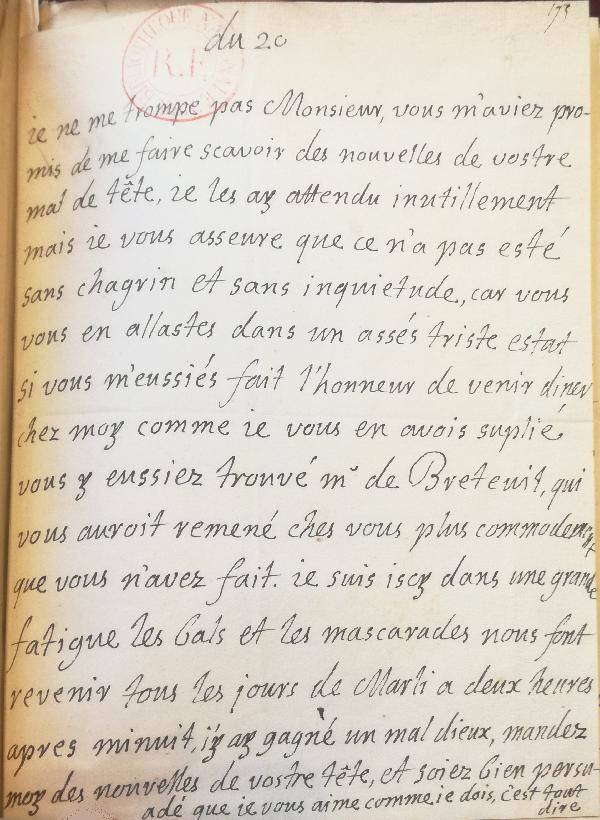 173
du 20
ie ne me trompe pas Monsieur, vous m'aviez pro-
mis de me faire scavoir des nouvelles de vostre
mal de tête, ie les ay attendu inutillement
mais ie vous asseure que ce n'a pas esté
sans chagrin et sans inquietude, car vous
vous en allastes dans un assés triste estat
si vous m'eussiés fait l'honneur de venir diner
chez moy comme ie vous en avois suplié,
vous y eussiez trouvé mr de Breteuil, qui
vous auroit remené ches vous plus commodement
que vous n'avez fait. ie suis iscy dans une grande
fatigue les bals et les mascarades nous font
revenir tous les jours de Marli a deux heures
apres minuit, i'y ay gagné un mal dieux, mandez
moy des nouvelles de vostre tête, et soiez bien persu-
adé que ie vous aime comme ie dois, c'est tout
dire